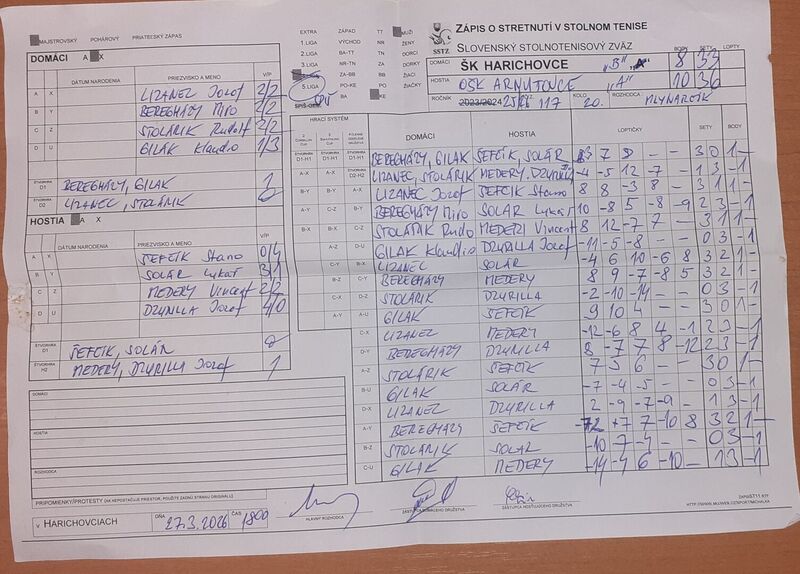 MAJSTROVSKÝ POHÁROVÝ PRIATEĽSKÝ ZÁPAS
ZÁPIS O STRETNUTÍ V STOLNOM TENISE
SLOVENSKÝ STOLNOTENISOVÝ ZVÄZ
SSTZ
EXTRA ZÁPAD TT MUŽI
1.LIGA VÝCHOD NR ŽENY
2.LIGA BA-TT TN DORCI
3.LIGA NR-TN ZA DORKY
ZA-BB BB ŽIACI
5.LIGA PO-KE PO ŽIAČKY
BA KE
BODY SETY LOPTY
DOMÁCI ŠK HARICHOVCE "B" 8 33
HOSTIA OŠK ARNUTOVCE "A" 10 36
ROČNÍK 2023/2024 25/26 117 KOLO 20. ROZHODCA MLYNARČÍK
DOMÁCI A
DÁTUM NARODENIA PRIEZVISKO A MENO V/P
A X LIZANEC Jozef 2/2
B Y BEREGHÁZY Miro 2/2
C Z STOLÁRIK Rudolf 2/2
D U GILAK Klaudio 1/3
ŠTVORHRA D1 BEREGHÁZY, GILAK 1
D2 LIZANEC, STOLÁRIK 0
HOSTIA A X
DÁTUM NARODENIA PRIEZVISKO A MENO V/P
A X ŠEFČÍK Stano 0/4
B Y SOLÁR Lukáš 3/1
C Z MEDERY Vincent 2/2
D U DZURILLA Jozef 4/0
ŠTVORHRA D1 ŠEFČÍK, SOLÁR 0
ŠTVORHRA H2 MEDERY, DZURILLA Jozef 1
HRACÍ SYSTÉM
DOMÁCI HOSTIA LOPTIČKY SETY BODY
D1-H1 D1-H1 D1-H1 BEREGHÁZY, GILAK ŠEFČÍK, SOLÁR 7 8 - - 3 0 1 -
A-X A-X D2-H2 LIZANEC, STOLÁRIK MEDERY, DZURILLA -4 -5 12 -7 - 1 3 -1
B-Y B-Y A-X LIZANEC Jozef ŠEFČÍK Stano 8 8 -3 8 - 3 1 1 -
A-Y C-Z B-Y BEREGHÁZY Miro SOLÁR Lukáš 10 -8 5 -8 -9 2 3 -1
B-X B-X C-Z STOLÁRIK Rudo MEDERI Vincent 8 12 -7 7 - 3 1 1 -
A-Z D-U GILAK Klaudio DZURILLA Jozef -11 -5 -8 - - 0 3 -1
C-Y B-X LIZANEC SOLÁR -4 6 10 -6 8 3 2 1 -
B-Z C-Y BEREGHÁZY MEDERY 8 9 -7 -8 5 3 2 1 -
C-X D-Z STOLÁRIK DZURILLA -2 -10 -14 - - 0 3 -1
A-Y A-U GILAK ŠEFČÍK 9 10 4 - - 3 0 1 -
C-X LIZANEC MEDERY -12 -6 8 4 -1 2 3 -1
D-Y BEREGHÁZY DZURILLA 8 -7 7 8 -12 2 3 -1
A-Z STOLÁRIK ŠEFČÍK 7 5 6 - - 3 0 1 -
B-U GILAK SOLÁR -7 -4 -5 - - 0 3 -1
D-X LIZANEC DZURILLA 2 -9 -7 -9 - 1 3 -1
A-Y BEREGHÁZY ŠEFČÍK 7 -10 8 3 2 1 -
B-Z STOLÁRIK SOLÁR -10 -7 -4 - - 0 3 -1
C-U GILAK MEDERY -14 -4 6 -10 - 1 3 -1
DOMÁCI
HOSTIA
ROZHODCA
PRIPOMIENKY/PROTESTY (AK NEPOSTAČUJE PRIESTOR, POUŽITE ZADNÚ STRANU ORIGINÁLU)
V HARICHOVCIACH DŇA 27.3.2026 ČAS 1800
HLAVNÝ ROZHODCA
ZÁSTUPCA DOMÁCEHO DRUŽSTVA
ZÁSTUPCA HOSŤUJÚCEHO DRUŽSTVA